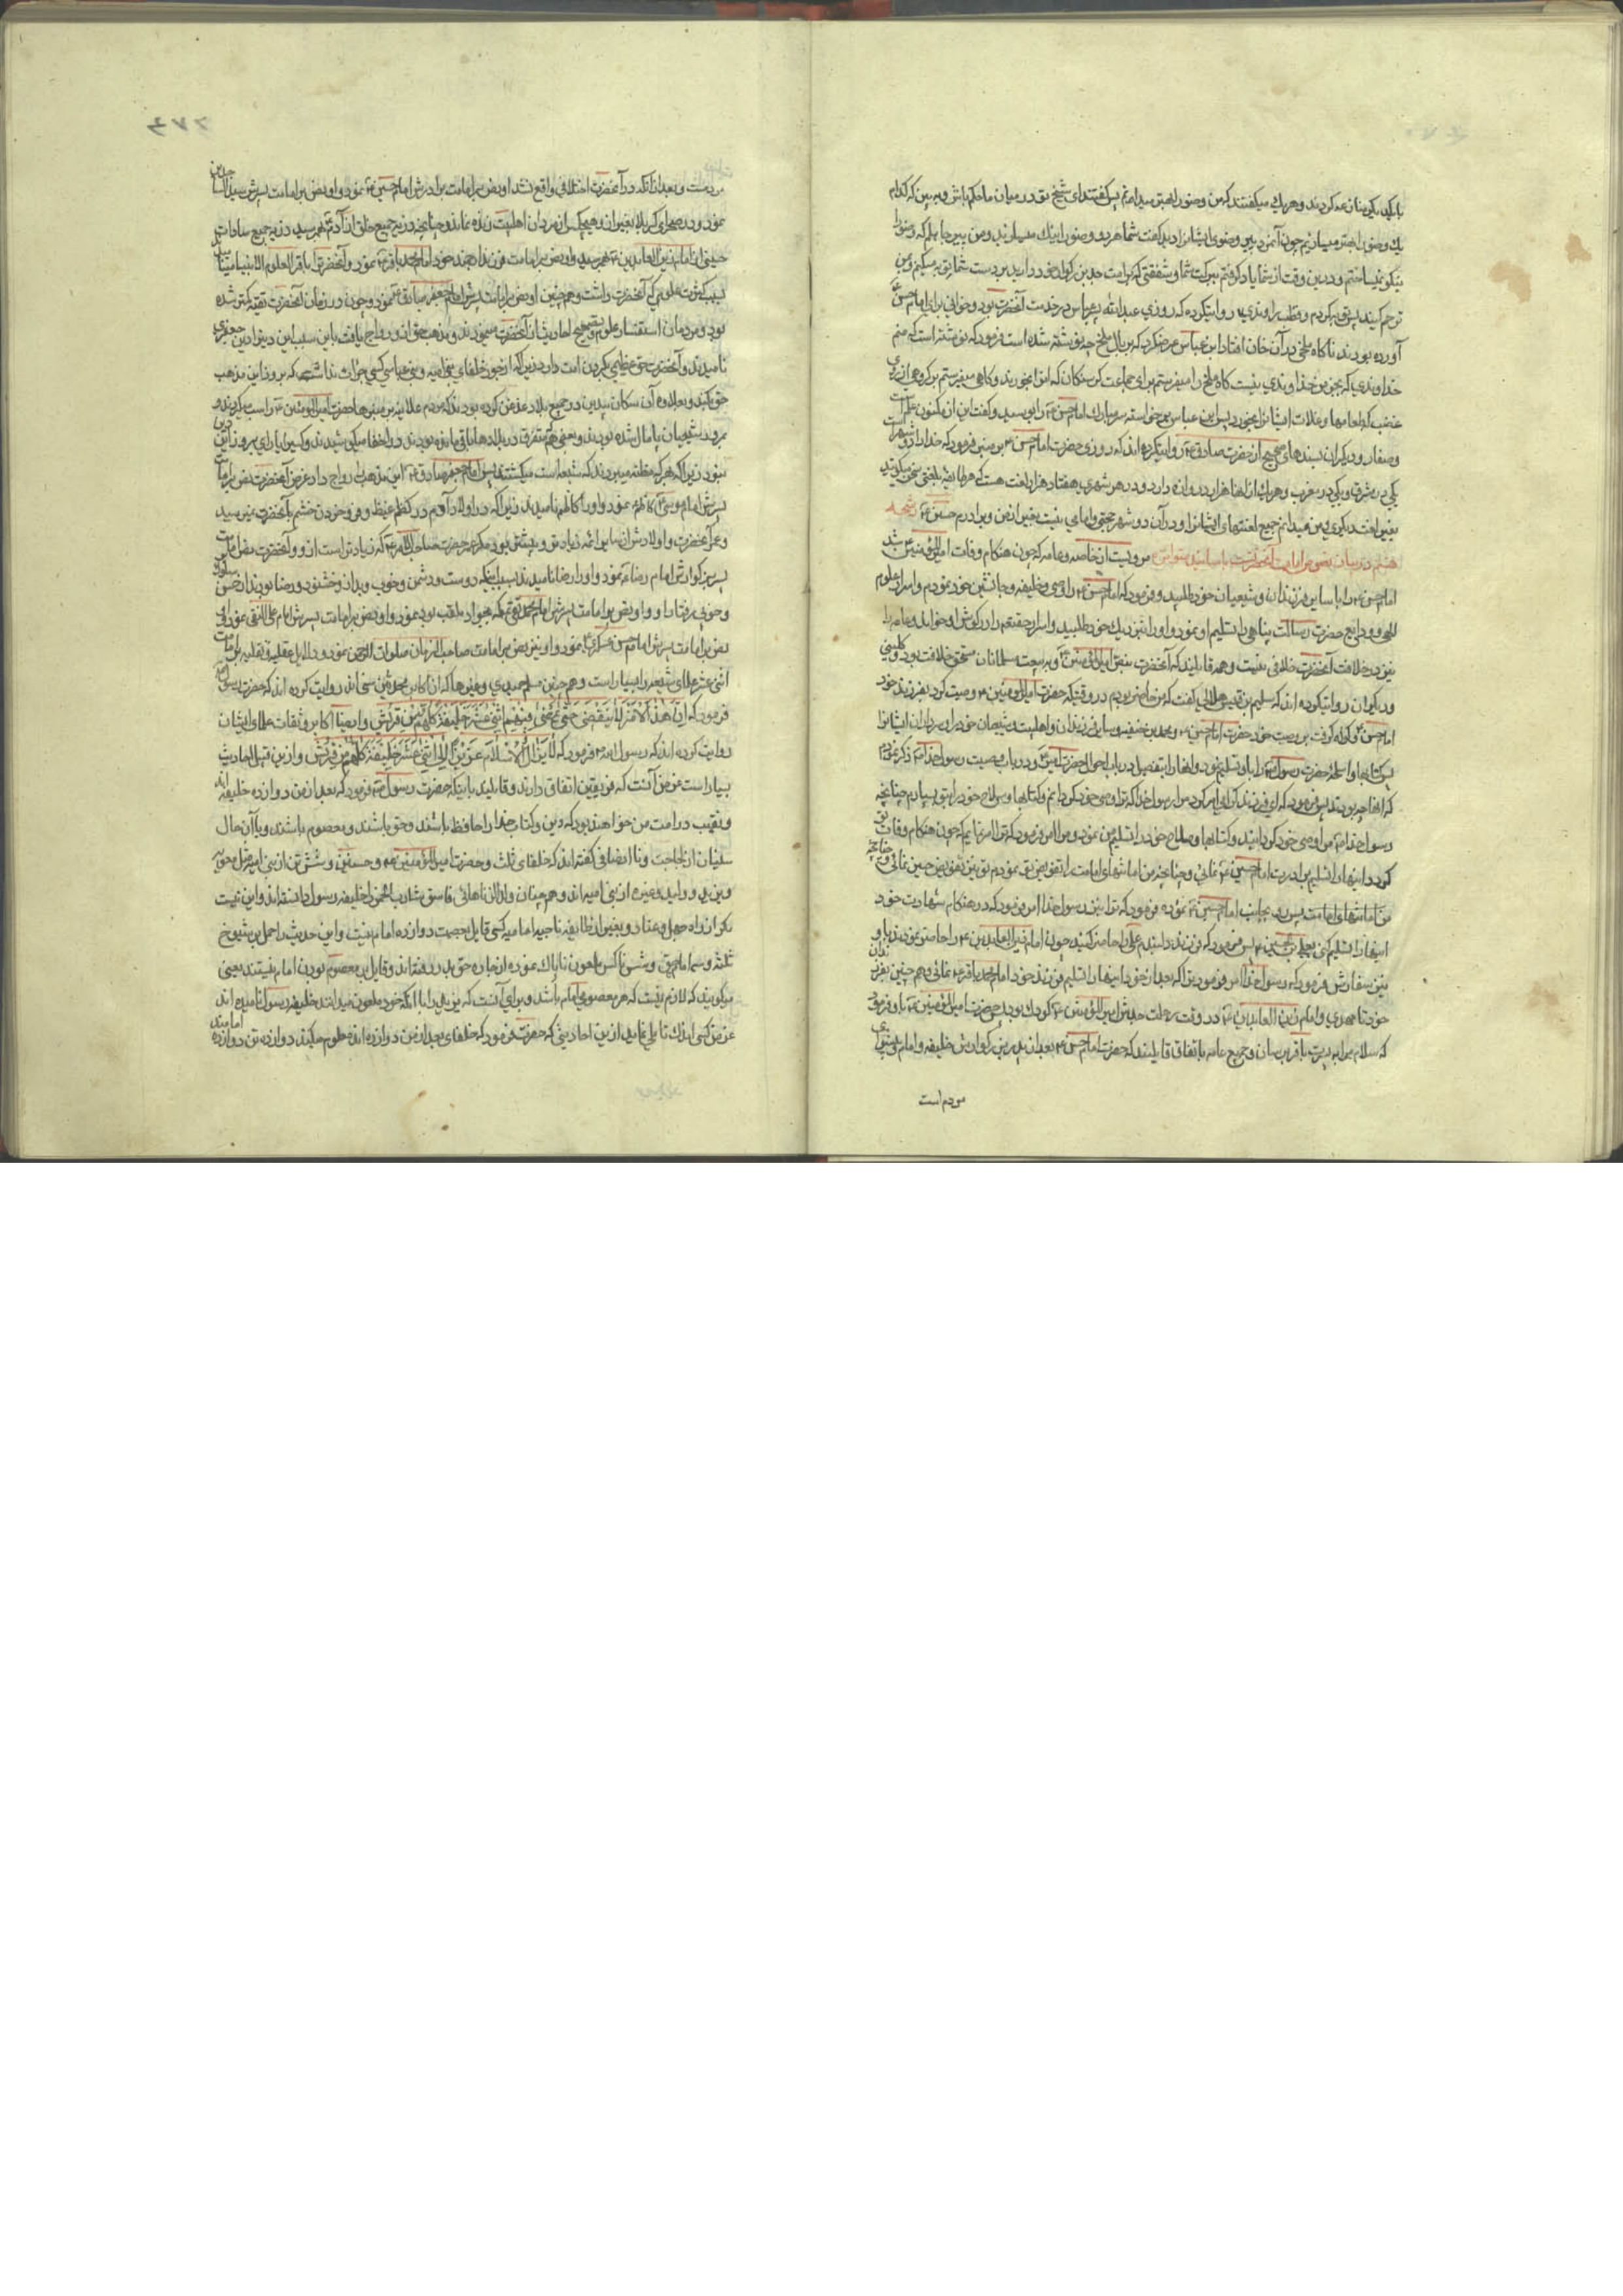 با یکدیگر بنا نزاع کردند و هر یک میگفتند که من وضو را بهتر میدانم پس گفتند ای شیخ تو در میان ما حکم باش و ببین که کدام
یک وضو را بهتر میسازیم چون آنمرد پیر وضوی ایشانرا دید گفت شما هر دو وضو را نیک میسازید و من پیر جاهلم که وضو را
نیکو نمیساختم و درین وقت از شما یاد گرفتم ببرکت شما و شفقتی که بر امت جد بزرگوار خود دارید بر دست شما توبه میکنم و بمن
ترحم کنید و قطب راوندی روایت کرده که روزی عبدالله بن عباس در خدمت آنحضرت بود و خوانی برای امام حسن
آورده بودند ناگاه ملخی در آن خوان افتاد ابن عباس عرض کرد که بر بال ملخ چه نوشته شده است فرمود که نوشته است که منم
خداوندی که بجز من خداوندی نیست گاه ملخ را میفرستم برای جماعت گرسنگان که انرا بخورند و گاهی میفرستم بر گروهی از روی
غضب که طعامها و غلات ایشانرا بخورد پس ابن عباس برخواسته سر مبارک امام حسن را بوسید و گفت این از مکنون علم است
و صفار و دیگران بسندهای صحیح از حضرت صادق روایت کرده اند که روزی حضرت امام حسن بر منبر فرمود که خدا را دو شهر است
یکی در مشرق و یکی در مغرب و هر یک از انها هزار دروازه دارد و در هر شهری هفتاد هزار لغت هست که هر طایفه بلغتی سخن میگویند
بغیر لغت دیگری و من میدانم جمیع لغتهای ایشانرا و در آن دو شهر حجتی و امامی نیست بغیر از من و برادرم حسین
هشتم در بیان نصوص امامت آنحضرت باسانید متواتره مرویست از خاصه و عامه که چون هنکام وفات امیرالمؤمنین شد
امام حسن را با سایر فرزندان و شیعیان خود طلبید و فرمود که امام حسن را وصی و خلیفه و جانشین خود نمودم و اسرار علوم
الهی و ودایع حضرت رسالت پناهی را تسلیم او نمود و او را نزدیک خود طلبید و اسرار حقیقه را در گوش او خواند و عامه را
نیز در خلافت آنحضرت خلافی نیست و همه قایلند که آنحضرت بنص امیرالمؤمنین و به بیعت مسلمانان مستحق خلافت بود و کلینی
و دیگران روایت کرده اند که سلیم بن قیس هلالی گفت که من حاضر بودم در وقتیکه حضرت امیرالمؤمنین وصیت کرد بفرزند خود
امام حسن و گواه گرفت بر وصیت خود حضرت امام حسین و محمد بن حنفیه و سایر فرزندان و اهلبیت و شیعیان خود را و سرداران ایشانرا
پس کتابها و اسلحه حضرت رسول را باو تسلیم نمود
که انها چه بودند پس فرمود که ای فرزند گرامی امر کرد مرا رسول خدا که ترا وصی خود کردانم و کتابها و سلاح خود را بتو بسپارم چنانچه
رسول خدا مرا وصی خود گردانید و کتابها و سلاح خود را تسلیم من نمود و مرا امر فرمود که ترا امر نمایم که چون هنکام وفات تو
گردد اینها را تسلیم برادرت امام حسین نمائی
پس بجانب امام حسین نموده فرمود که ترا نیز رسول خدا امر فرمود که در هنکام شهادت خود
اینها را تسلیم کنی بعلی بن الحسین پس فرمود که فرزند دلبندم علی را حاضر کنید چون امام زین العابدین را حاضر نمودند باو
نیز سفارش فرمود که رسول خدا امر فرمود ترا که بعد از خود اینها را تسلیم فرزند خود امام محمد باقر نمائی و هم چنین بفرزندان
خود تا مهدی و امام زین العابدین در وقت رحلت جدش امیرالمؤمنین کودک بود پس حضرت امیرالمؤمنین باو فرمود
که سلام مرا به پسرت باقر برسان و جمیع عامه باتفاق قایلند که حضرت امام حسن بعد از پدر بزرگوارش خلیفه و امام و پیشوای
مردم است
مردمست و بعد از آنکه در آنحضرت اختلافی واقع نشد او نص بر امامت برادرش امام حسین نمود و او نص بر امامت پسرش سید الساجدین
نمود و در صحرای کربلا بغیر از او هیچکس از مردان اهلبیت زنده نماند و چنانچه ذریه جمیع خلق از آدم بهم رسید ذریه جمیع سادات
حسینی از امام زین العابدین بهم رسید و او نص بر امامت فرزند ارجمند خود امام محمد باقر نمود و آنحضرت را باقر العلوم الانبیا مینامند
بسبب کثرت علومی که آنحضرت داشت و هم چنین او نص بر امامت پسرش امام جعفر صادق نمود و چون در زمان آنحضرت تقیه کمتر شده
بود و مردمان استفسار علوم و تصحیح احادیث از آنحضرت مینمودند و مذهب حق از او رواج یافت باین سبب این دین را دین جعفری
نامیدند و آنحضرت حق عظیمی بگردن امت دارد زیرا که از جور خلفای بنی امیه و بنی عباس کسی جرات نداشت که بروز این مذهب
حق کند
بمرور شیعیان پامال شده بودند و بعضی هم متفرق در بلادها باقی مانده بودند و در اخفا میکوشیدند و کسیرا یارای بروز این دین
نبود زیرا که هر که مظنه میبردند که شیعه است میکشتند پس امام جعفر صادق این مذهب را رواج داد غرض آنحضرت نص بر امامت
پسرش امام موسی کاظم نمود و او را کاظم نامیدند زیرا که در اولاد آدم در کظم غیظ و فرو خوردن خشم بآنحضرت نمیرسید
و عمر آنحضرت و اولادش از سایر ائمه زیادتر و بیشتر بود مگر عمر حضرت صاحب الامر که زیادتر است از او و آنحضرت نص بر امامت
پسر بزرگوارش امام رضا نمود و او را رضا نامیدند بسبب اینکه دوست و دشمن و خوب و بد از او خشنود و رضا بودند از حسن سلوک
و خوبی رفتار او و او نص بر امامت پسرش امام محمد تقی که بجواد ملقب بود نمود و او نص بر امامت پسرش امام علی النقی نمود و او
نص بر امامت پسرش امام حسن عسکری نمود و او نیز نص بر امامت صاحب الزمان صلوات الرحمن نمود و دلایل عقلیه و نقلیه بر امامت
اثنی عشر علمای شیعه را بسیار است و هم چنین مسلم حمیدی و غیرها که از اکابر محدثین سنی اند روایت کرده اند که حضرت رسول
فرمود که إِنَّ هٰذَا الْأَمْرَ لَا یَنْقَضِی حَتّٰی یَمْضِیَ فِیهِمْ اثْنٰی عَشَرَ خَلِیفَةً کُلُّهُمْ مِنْ قُرَیْشٍ و ایضا اکابر و ثقات علمای ایشان
روایت کرده اند که رسول الله فرمود که لَا یَزَالُ الْإِسْلَامُ عَزِیزًا إِلٰی اثْنٰی عَشَرَ خَلِیفَةً کُلُّهُمْ مِنْ قُرَیْشٍ و ازین قبیل احادیث
بسیار است غرض آنست که فریقین اتفاق دارند و قایلند باینکه حضرت رسول فرمود که بعد از من دوازده خلیفه
و نقیب در امت من خواهند بود که دین و کتاب خدا را حافظ باشند و حق باشند و معصوم باشند و با آن حال
سنیان از لجاجت و نا انصافی گفته اند که خلفای ثلث و حضرت امیرالمؤمنین و حسنین و شش تن از بنی امیه مثل معویه
و یزید و ولید و غیره از بنی امیه اند و هم چنان والیان ناهل فاسق شارب الخمر را خلیفه رسول دانسته اند و این نیست
مگر از راه جهل و عناد و بغیر از طایفه ناجیه امامیه کسی قایل بعصمت دوازده امام نیست و این حدیث را حمل بر شیوخ
ثلثه و سه امام بحق و شش ناکس ملعون ناپاک نموده از جاده حق بدر رفته اند و قایل بر معصوم بودن امام نیستند یعنی
میگویند که لازم نیست که هر معصومی امام باشد و برای آنست که یزید پلید را با آنکه خود ملعون میدانند خلیفه رسول نامیده اند
غرض کسی اندک تاملی نماید ازین احادیثی که حضرت فرمود که خلفای بعد از من دوازده اند معلوم میکند دوازده تن دوازده امامند